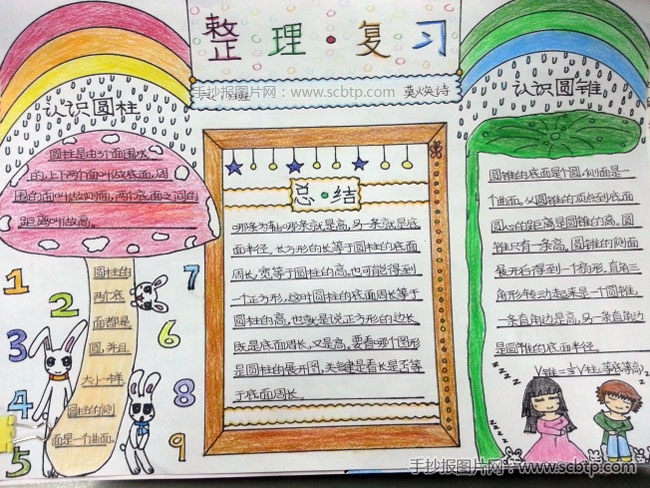 整理·复习
手抄报图片网：www.scbtp.com
认识圆柱
圆柱是由3个面围成
的,上下两个面叫做底面,周
围的面叫做侧面,两个底面之间的
距离叫做高。
圆柱的
两个底
面都是
圆,并且
大小一样
圆柱的侧
面是一个曲面。
1
2
3
4
5
7
6
8
9
总·结
哪条为轴哪条就是高,另一条就是底
面半径。长方形的长等于圆柱的底面
周长,宽等于圆柱的高,也可能得到
一个正方形,这时圆柱的底面周长等于
圆柱的高,也就是说正方形的边长
既是底面周长,又是高,要看哪个图形
是圆柱的展开图,关键是看长是否等
于底面周长。
认识圆锥
圆锥的底面是个圆,侧面是一
个曲面。从圆锥的顶点到底面
圆心的距离是圆锥的高。圆
锥只有一条高。圆锥的侧面
展开后得到一个扇形,直角三
角形转动起来是一个圆锥,
一条直角边是高,另一条直角边
是圆锥的底面半径。
V锥=⅓V柱(等底等高)
手抄报图片网：www.scbtp.com